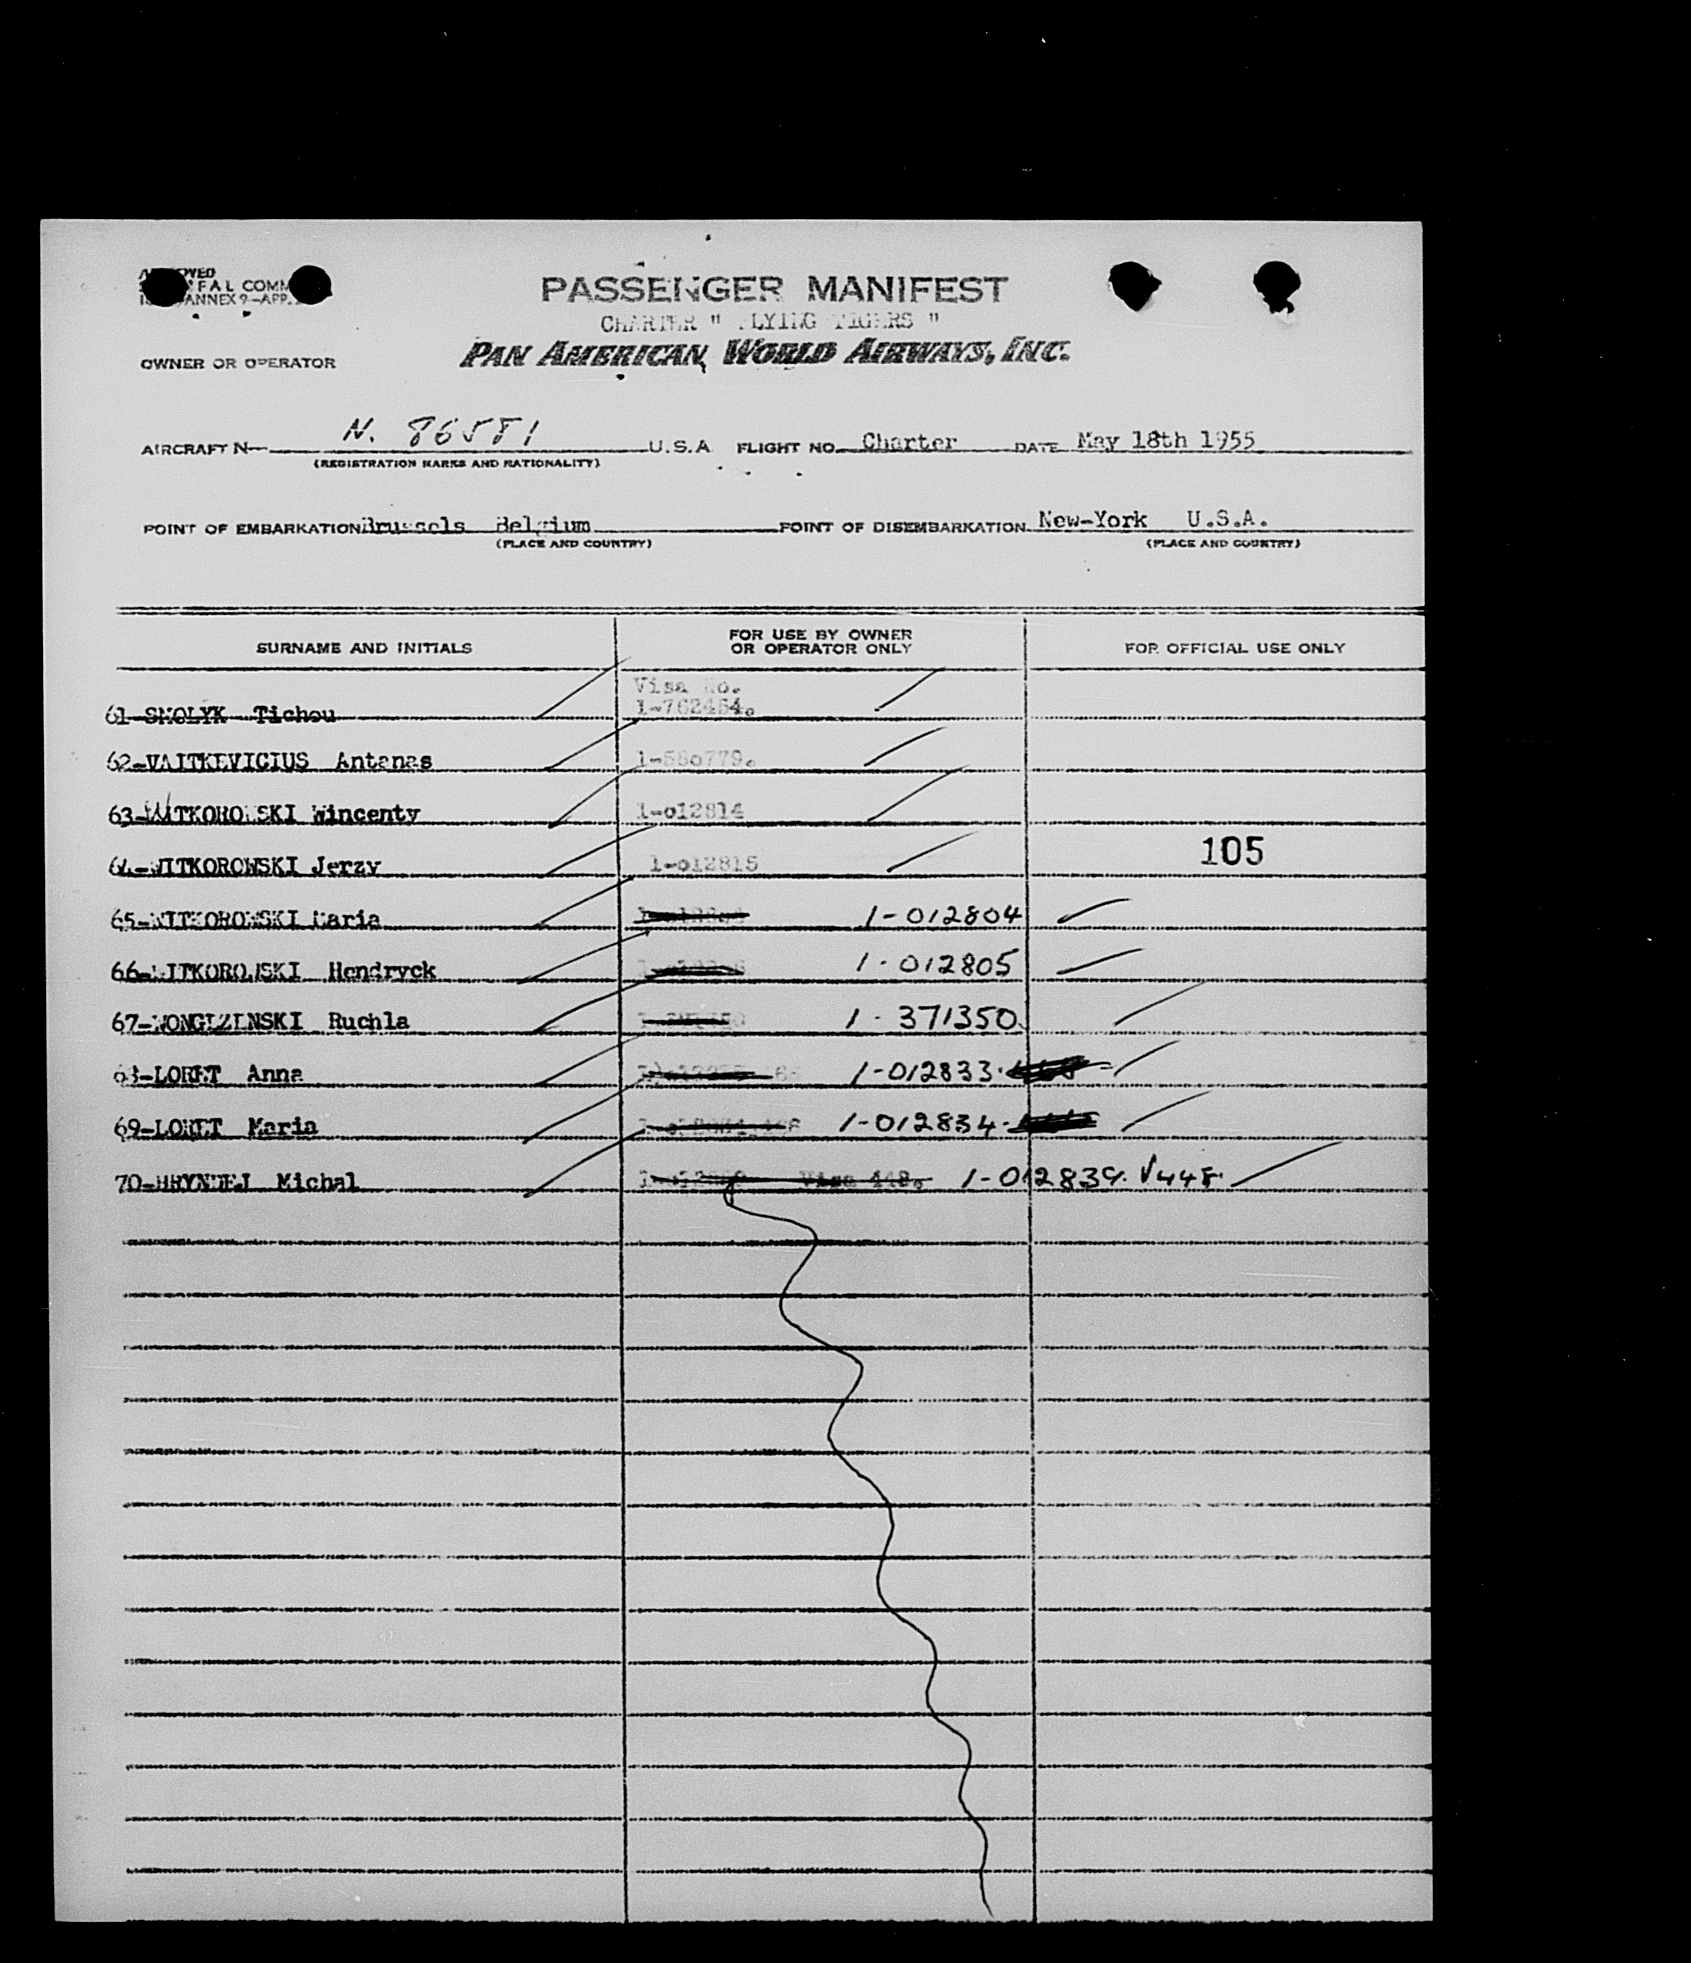 PASSENGER MANIFEST
FAL COMM
ANNEX 9-APP.
CHARTER " FLYING TIGERS "
OWNER OR OPERATOR PAN AMERICAN WORLD AIRWAYS, INC.
AIRCRAFT N N. 86581 U.S.A FLIGHT NO. Charter DATE May 18th 1955
(REGISTRATION MARKS AND NATIONALITY)
POINT OF EMBARKATION Brussels Belgium POINT OF DISEMBARKATION New-York U.S.A.
(PLACE AND COUNTRY) (PLACE AND COUNTRY)
SURNAME AND INITIALS FOR USE BY OWNER OR OPERATOR ONLY FOR OFFICIAL USE ONLY
Visa No.
61-SMOLYK Tichou 1-762454.
62-VAITKEVICIUS Antanas 1-580779.
63-WITKOROWSKI Wincenty 1-o12814
64-WITKOROWSKI Jerzy 1-o12815 105
65-WITKOROWSKI Maria 1-012804
66-WITKOROWSKI Hendryck 1-012805
67- Ruchla 1-371350
68-LORET Anna 1-012833.
69-LORET Maria 1-012834.
70-HRYNDEJ Michal Visa 448. 1-012839. V448.